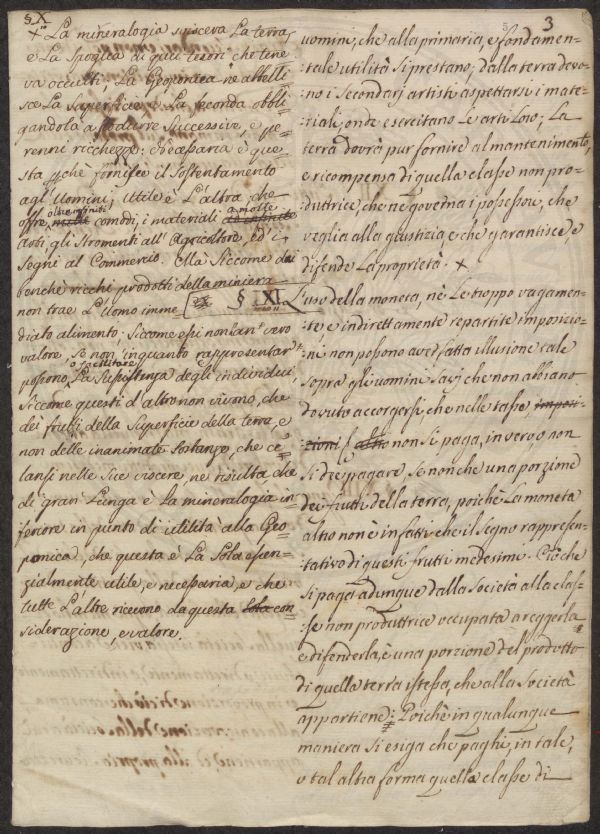 § X.
3
+ La mineralogia sviscera La terra,
e La spoglia di quei tesori che tene
va occulti; La Geoponica ne abbelli
sce La superficie e La feconda obbli
gandola a produrre successive, e pe=
renni ricchezze; Necessaria è que=
sta pchè fornisce il sostentamento
agl'Uomini; utile è L'altra, che
oltre infiniti a molte
offre, comodi, i materiali
Arti, gli stromenti all'Agricoltore, ed i
segni al Commercio. Ma siccome dai
bonchè ricchi prodotti della miniera
non trae L'Uomo imme
diato alimento; siccome essi non han vero
valore, se non in quanto rappresentar
o facilitare
possono La sussistenza degli individui,
siccome questi d'altro non vivono, che
dei frutti della superficie della terra, e
non delle inanimate sostanze, che ce=
lansi nelle sue viscere, ne risulta che
di gran Lunga è La mineralogia in
feriore in punto di utilità alla Geo
ponica, che questa è La sola essen=
zialmente utile, e necessaria, e che
tutte L'altre ricevono da questa Loro con
siderazione, e valore.
uomini, che alla primaria, e fondamen=
tale utilità si prestano; dalla terra devo=
no i secondarj artisti aspettarsi i mate=
riali, onde esercitano Le arti Loro; La
terra dovrà pur fornire al mantenimento,
e ricompensa di quella classe non pro=
duttrice, che ne governa i possessori, che
veglia alla giustizia, e che garantisce, e
difende La proprietà. +
§. XI.
L'uso della moneta, nè Le troppo vagamen=
te, e indirettamente repartite imposizio=
ni non possono aver fatta illusione tale
sopra gli uomini savj che non abbiano
dovuto accorgersi, che nelle tasse imposi=
zioni altro non si paga, in vero, o non
si dee pagare, se non che una porzione
dei frutti della terra, poichè La moneta
altro non è infatti che il segno rappresen=
tativo di questi frutti medesimi. Ciò che
si paga adunque dalla Società alla clas=
se non produttrice occupata a reggerla
e difenderla, è una porzione del prodotto
di quella terra istessa, che alla Società
appartiene; Poichè in qualunque
maniera si esiga che paghi, in tale,
o tal altra forma quella classe di